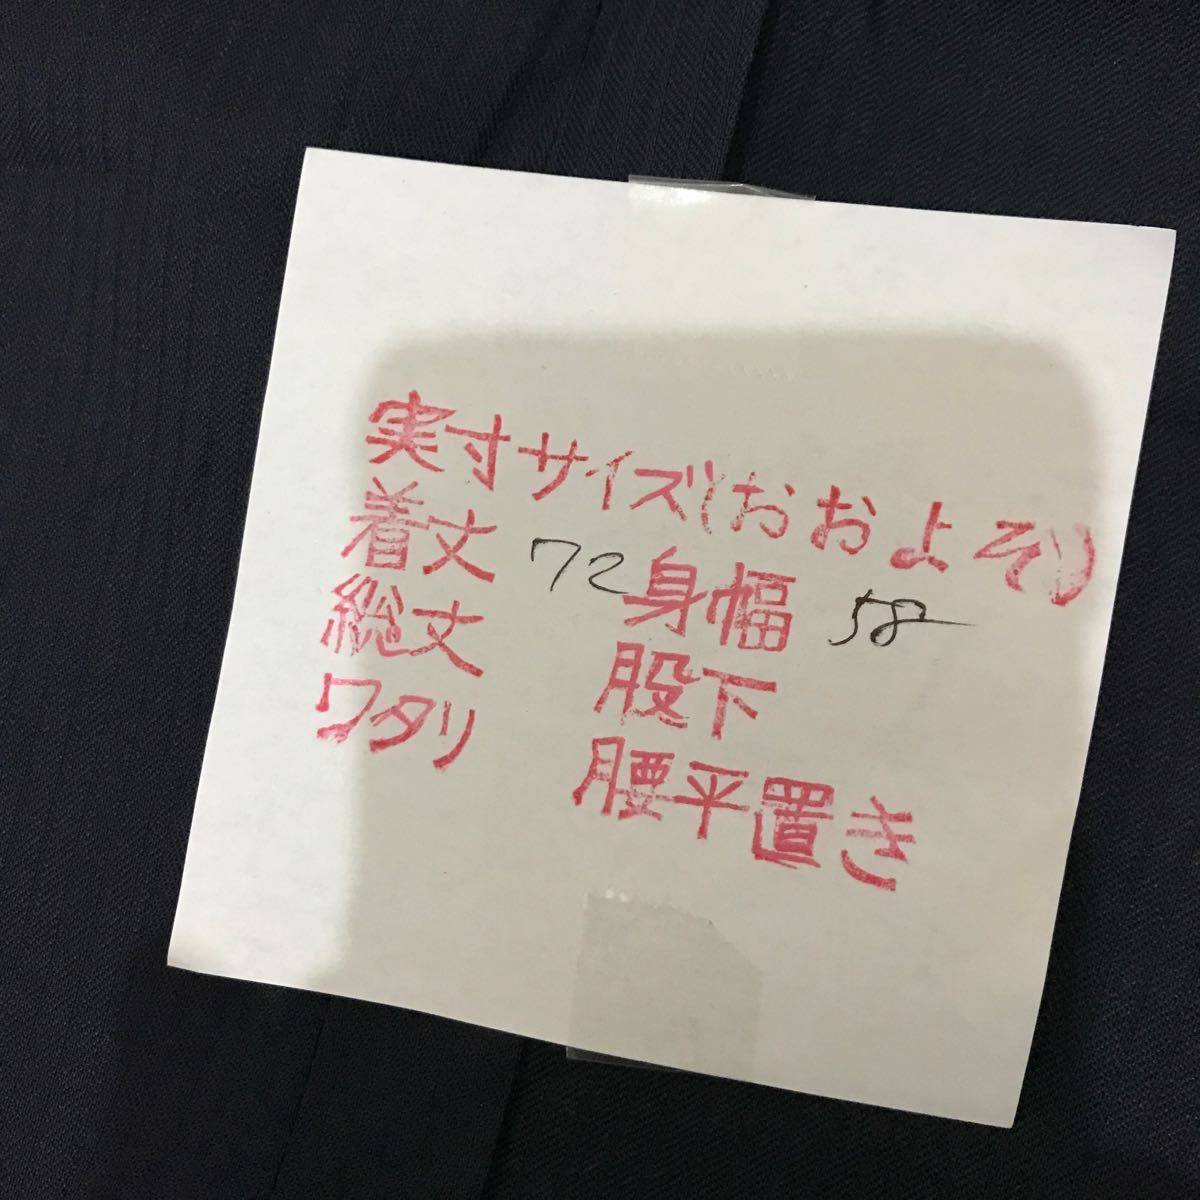 実寸サイズ(おおよそ)
着丈 72 身幅 58
総丈 股下
ワタリ 腰平置き